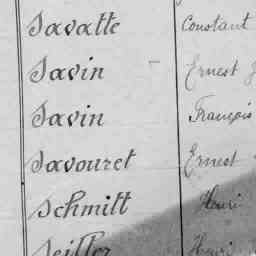 Savatte Constant
Savin Ernest J
Savin François
Savouret Ernest
Schmitt Henri
Seiller Henri